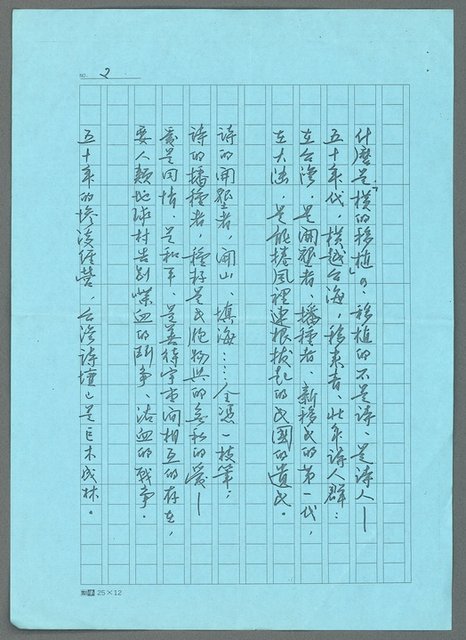 NO. 2
什麼是「橫的移植」?移植的不是詩、是詩人—
五十年代,橫越台海,移來者、壯年詩人群:
在台灣,是開墾者、播種者、新移民的第一代,
在大陸,是龍捲風裡連根拔起的民國的遺民。
詩的開墾者,開山、填海……全憑一枝筆,
詩的播種者,種籽是民胞物與的無私的愛—
愛是同情、是和平、是善待宇宙間相互的存在,
要人類地球村告別喋血的鬥爭、沾血的戰爭.
五十年的慘淡經營,台灣詩壇已是巨木成林。
25×12